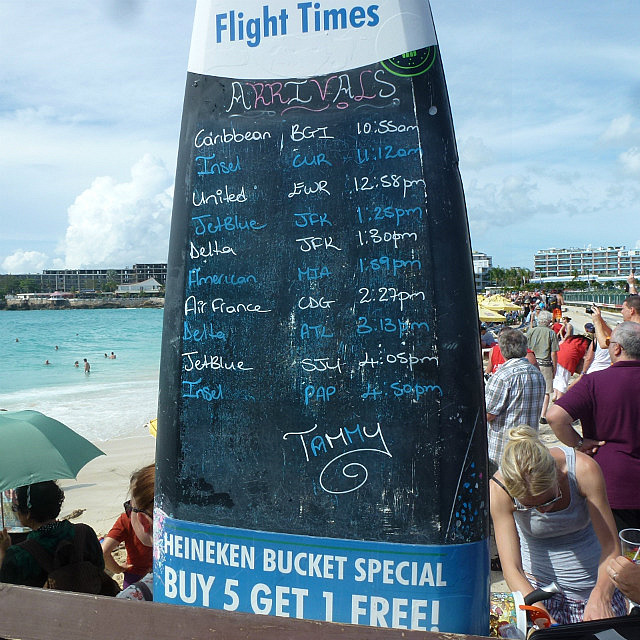 Flight Times
ARRIVALS
Caribbean BGI 10:55am
Insel CUR 11:12am
United EWR 12:58pm
JetBlue JFK 1:25pm
Delta JFK 1:30pm
American MIA 1:59pm
Air France CDG 2:27pm
Delta ATL 3:13pm
JetBlue SJU 4:05pm
Insel PAP 4:50pm
TAMMY
HEINEKEN BUCKET SPECIAL
BUY 5 GET 1 FREE!